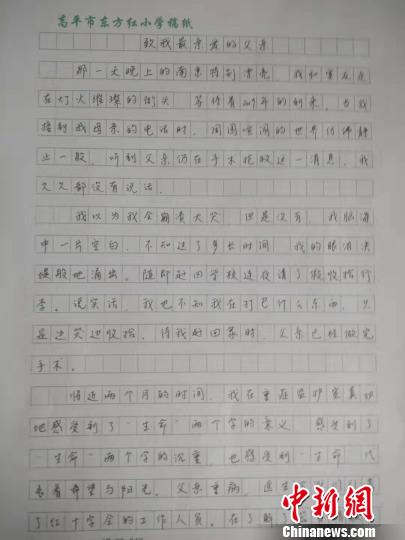 高平市东方红小学稿纸
致我最亲爱的父亲
那一天晚上的南京特别漂亮 我和室友走
在灯火璀璨的街头 等待着2019年的到来。当我
接到我母亲的电话时，周围喧闹的世界仿佛静
止一般。听到父亲仍在手术抢救这一消息，我
久久都没有说话。
我以为我会崩溃大哭 但是没有，我脑海
中一片空白，不知过了多长时间 我的眼泪决
堤般地涌出。随即赶回学校连夜请了假收拾行
李。说实话，我也不知我在打包什么东西，只
是边哭边收拾，待我赶回家时，父亲已经做完
手术。
将近两个月的时间，我在重症监护室真切
地感受到了“生命”两个字的意义 感受到了
“生命”两个字的沉重，也感受到“生命”代
表着希望与阳光。父亲重病，医生
了红十字会的工作人员。在了解了
中新网